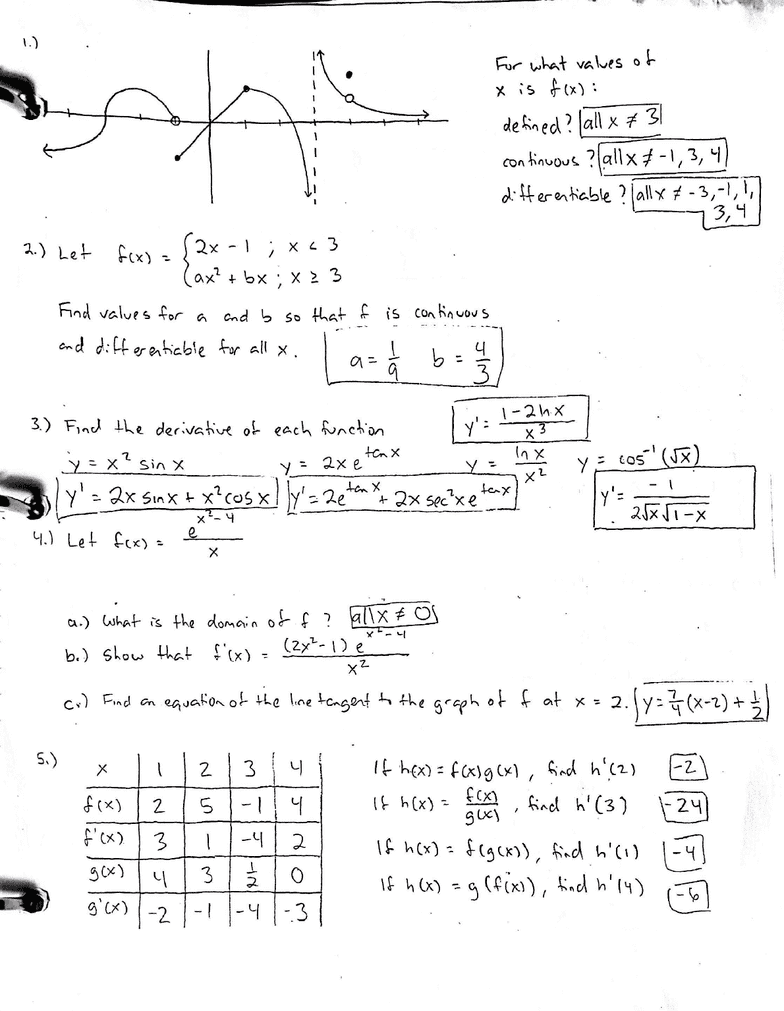 1.)
For what values of
x is f(x) :
defined? all x ≠ 3
continuous? all x ≠ -1, 3, 4
differentiable? all x ≠ -3, -1, 1,
3, 4
2.) Let f(x) = { 2x - 1 ; x < 3
ax² + bx ; x ≥ 3
Find values for a and b so that f is continuous
and differentiable for all x. a = 1/9 b = 4/3
3.) Find the derivative of each function y' = (1-2lnx)/x³
y = x² sin x y = 2x e^(tan x) y = ln x / x² y = cos⁻¹(√x)
y' = 2x sin x + x² cos x y' = 2e^(tan x) + 2x sec²x e^(tan x) y' = -1/(2√x √1-x)
4.) Let f(x) = e^(x²-4) / x
a.) What is the domain of f ? all x ≠ 0
b.) Show that f'(x) = (2x²-1) e^(x²-4) / x²
c.) Find an equation of the line tangent to the graph of f at x = 2. y = 7/4 (x-2) + 1/2
5.)
x 1 2 3 4 If h(x) = f(x)g(x) , find h'(2) -2
f(x) 2 5 -1 4 If h(x) = f(x)/g(x) , find h'(3) -24
f'(x) 3 1 -4 2 If h(x) = f(g(x)), find h'(1) -4
g(x) 4 3 1/2 0 If h(x) = g(f(x)), find h'(4) -6
g'(x) -2 -1 -4 -3